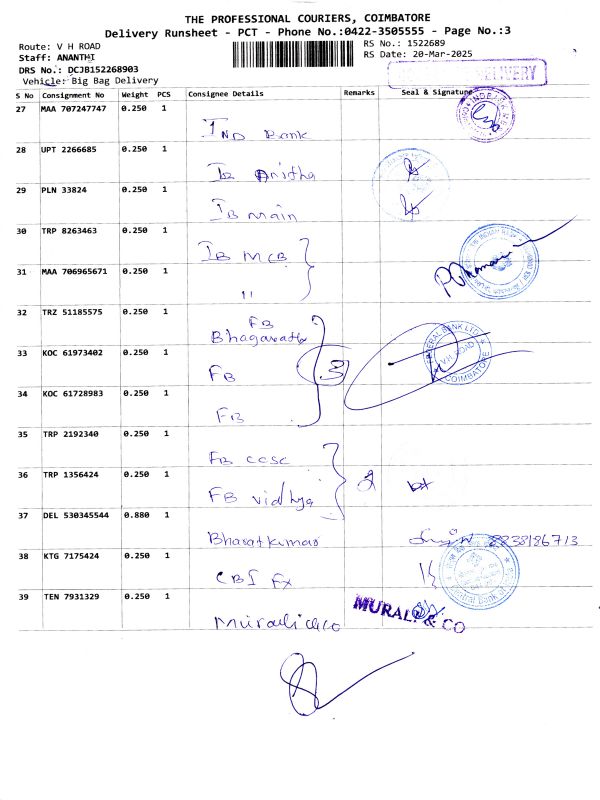 THE PROFESSIONAL COURIERS, COIMBATORE
Delivery Runsheet - PCT - Phone No.:0422-3505555 - Page No.:3
Route: V H ROAD
RS No.: 1522689
Staff: ANANTHI
RS Date: 20-Mar-2025
DRS No.: DCJB152268903
Vehicle: Big Bag Delivery
DELIVERY
S No Consignment No Weight PCS Consignee Details Remarks Seal & Signature
27 MAA 707247747 0.250 1
IND Bank
28 UPT 2266685 0.250 1
29 PLN 33824 0.250 1
IB main
30 TRP 8263463 0.250 1
IB MCB
31 MAA 706965671 0.250 1
"
32 TRZ 51185575 0.250 1
FB
33 KOC 61973402 0.250 1
FB
3
FEDERAL BANK LTD
V.H. ROAD
COIMBATORE
34 KOC 61728983 0.250 1
FB
35 TRP 2192340 0.250 1
FB ccsc
36 TRP 1356424 0.250 1
FB vidhya
2
37 DEL 530345544 0.880 1
Bharatkumar
8838186713
38 KTG 7175424 0.250 1
CBI Fx
39 TEN 7931329 0.250 1
Murali &co
MURALI & CO